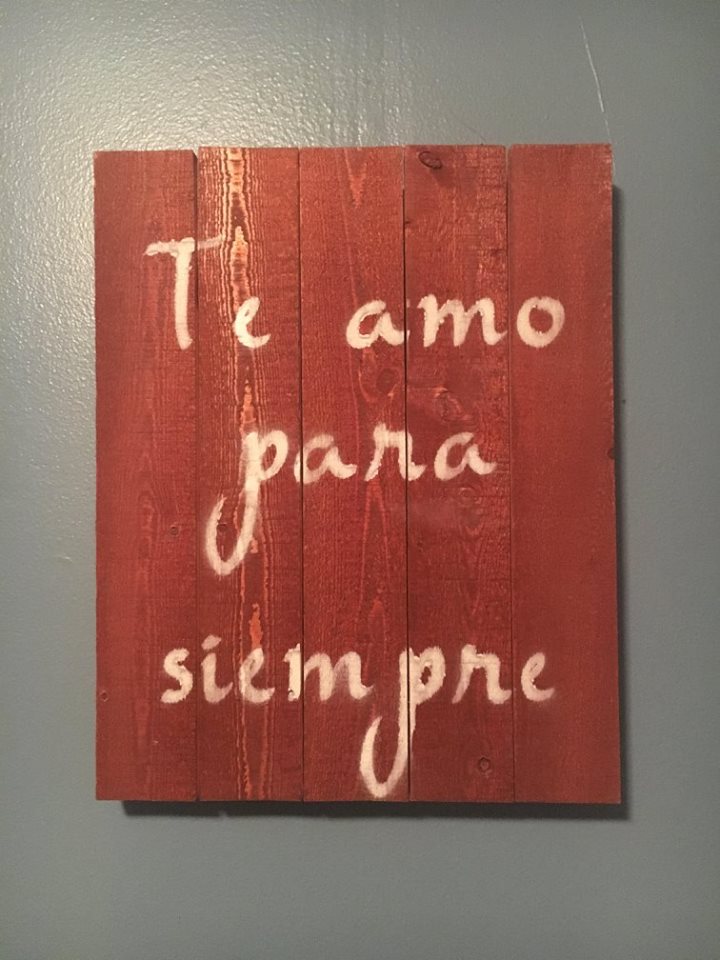 Te amo
para
siempre